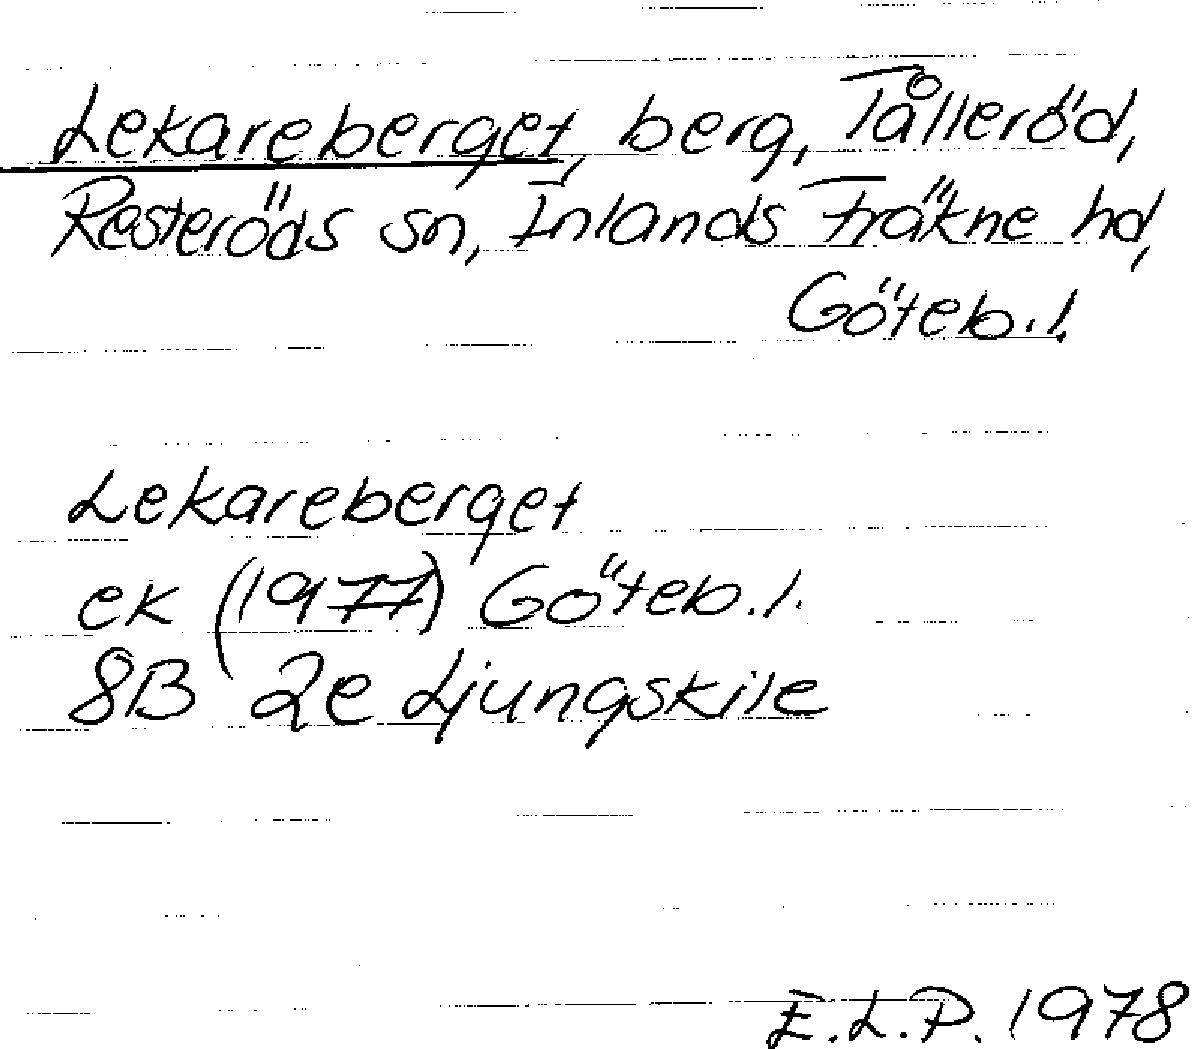 Lekareberget, berg, Tålleröd,
Resteröds sn, Inlands Fräkne hd,
Göteb.l.
Lekareberget
ek (1977) Göteb.l.
8B 2e Ljungskile
E.L.P. 1978